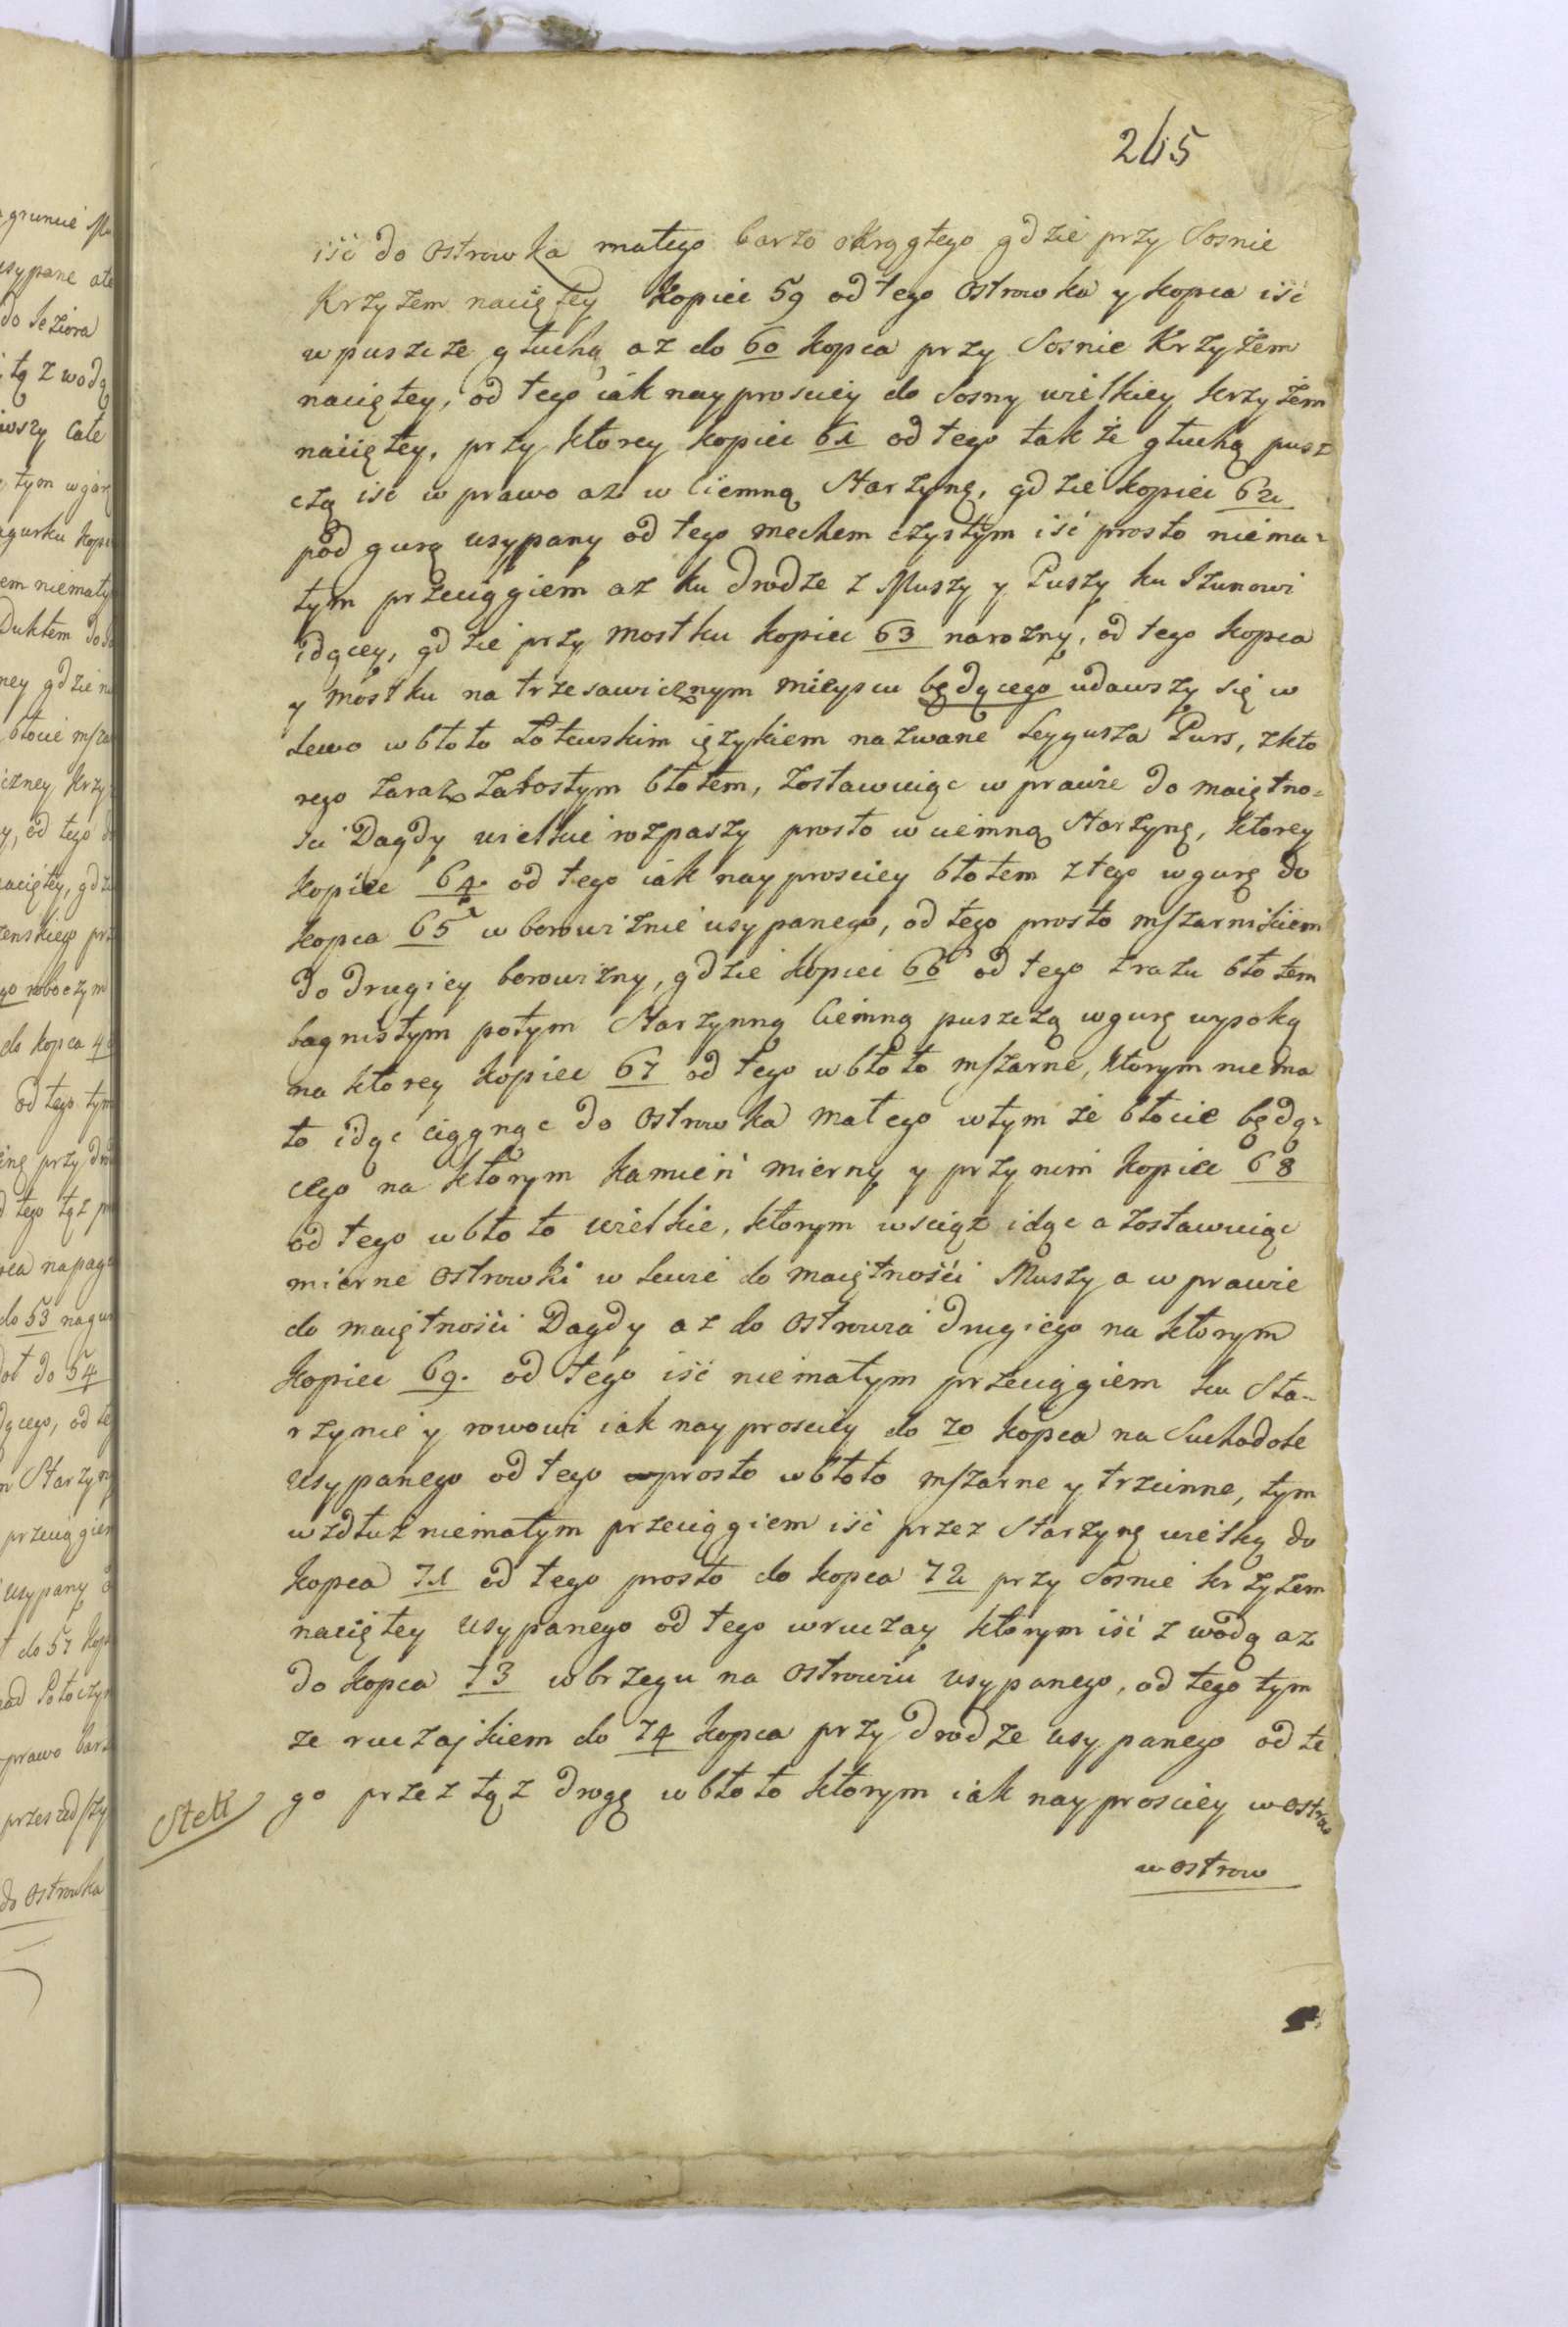 265
iść do ostrowka małego barzo okrągłego gdzie przy Sosnie
Krzyżem nacięłey kopiec 59 od tego ostrowka y kopca iść
w puszcze głuchą az do 60 kopca przy Sosnie Krzyżem
naciętey, od tego iak nayprosciey do Sosny wielkiey krzyżem
naciętey, przy ktorey kopiec 61 od tego także głuchą pusz
czą isć w prawo az w Ciemną Starzynę, gdzie kopiec 62
pod gurą usypany od tego mechem czystym iść prosto niema=
łym przeciągiem az ku drodze z Muszy y Puszy ku Izunowi
idącey, gdzie przy mostku kopiec 63 narozny, od tego kopca
y mostku na trzesawicznym mieyscu będącego udawszy się w
Lewo w błoto Łotewskim ięzykiem nazwane Leygusza Purs, zkto
rego zaraz zarostym błotem, zostawuiąc w prawie do maiętno=
sci Dagdy wielkie rozpaszy prosto w ciemną Starzynę, ktorey
kopiec 64. od tego iak nayprosciey błotem z tego w gurę do
kopca 65 w borowiznie usypanego, od tego prosto mszarnikiem
do drugiey borowizny, gdzie kopiec 66 od tego zrazu błotem
bagnistym potym Starzynną Ciemną puszczą w gurę wysoką
na ktorey kopiec 67 od tego w błoto mszarne, ktorym niema
ło idąc ciągnąc do ostrowka małego w tym że błocie będą=
cego na ktorym kamień mierny y przy nim kopiec 68
od tego w błoto wielkie, ktorym wsciąz idąc a zostawuiąc
mierne ostrowki w Lewie do maiętności Muszy a w prawie
do maiętności Dagdy az do ostrowia drugiego na ktorym
kopiec 69. od tego iść niemałym przeciągiem ku Sta-
rzynie y rowowi iak nayprosciey do 70 kopca na Suchodole
usypanego od tego prosto w błoto mszarne y trzcinne, tym
wzdłuż niemałym przeciągiem iść przez Starzynę wielką do
kopca 71 od tego prosto do kopca 72 przy Sosnie krzyżem
naciętey usypanego od tego w ruczay ktorym iść z wodą az
do kopca 73 w brzegu na ostrowiu usypanego, od tego tym
ze ruczajkiem do 74 kopca przy drodze usypanego od te
go przez tąz drogę w błoto ktorym iak nayprosciey w ostrow
w ostrow